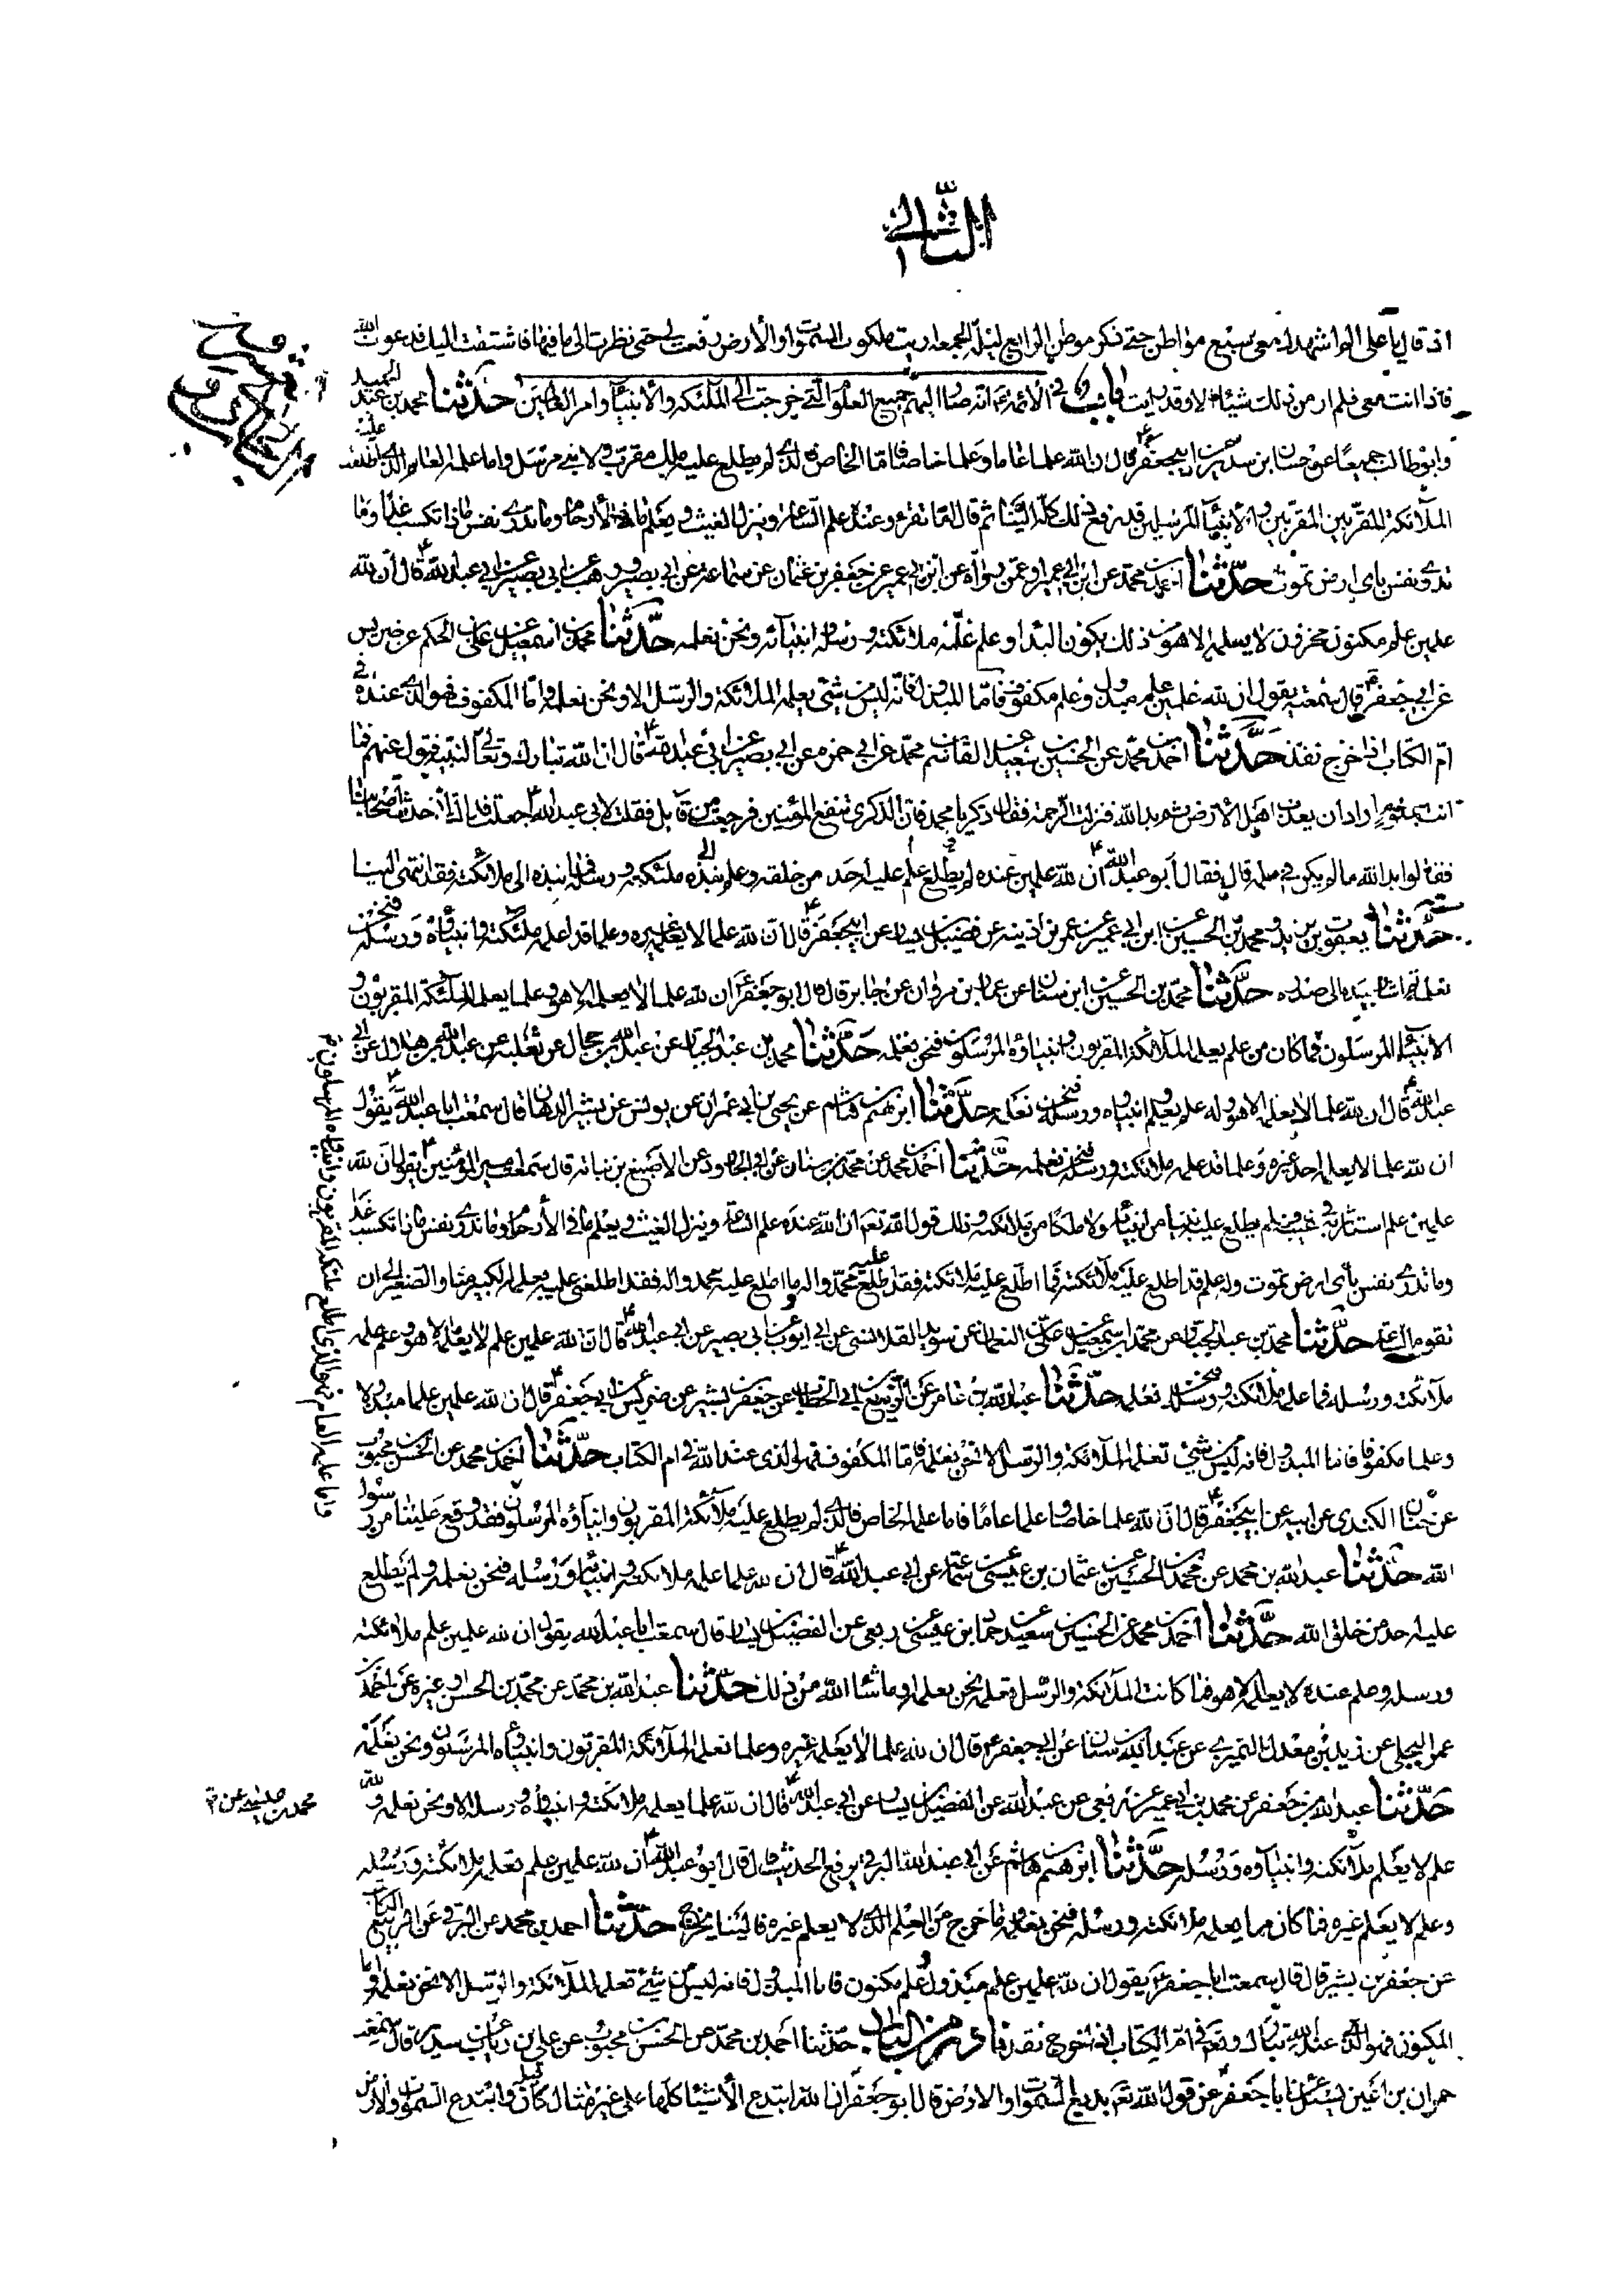 الثاني
اذ قال يا علي الم اشهدك معي سبع مواطن حتى ذكر موطن الرابع ليلة الجمعة اريت ملكوت السموات والأرض رفعت لي حتى نظرت الى ما فيها فاشتقت اليك فدعوت الله
فاذا انت معي فلم ار من ذلك شيئا الا وقد رايت باب في الأئمة انه صار اليهم جميع العلوم التي خرجت الى الملئكة والأنبياء وامر العالمين حدثنا محمد بن عبد الحميد
وابو طالب جميعا عن حنان بن سدير عن ابي جعفر ع قال ان لله علما عاما وعلما خاصا فاما الخاص فالذي لم يطلع عليه ملك مقرب ولا نبي مرسل واما علمه العام الذي اطلعت عليه
الملائكة المقربين والأنبياء المرسلين قد رفع ذلك كله الينا ثم قال اما تقرء وعنده علم الساعة وينزل الغيث ويعلم ما في الأرحام وما تدري نفس ماذا تكسب غدا وما
تدري نفس باي ارض تموت حدثنا احمد بن محمد عن ابن ابي عمير او عمن رواه عن ابن ابي عمير عن جعفر بن عثمان عن سماعة عن ابي بصير ووهيب عن ابي بصير عن ابي عبد الله ع قال ان لله
علمين علم مكنون مخزون لا يعلمه الا هو من ذلك يكون البدا وعلم علمه ملائكته ورسله وانبيائه ونحن نعلمه حدثنا محمد بن اسمعيل عن علي بن الحكم عن ضريس
عن ابي جعفر ع قال سمعته يقول ان لله علمين علم مبذول وعلم مكفوف فاما المبذول فانه ليس شيئ يعلمه الملائكة والرسل الا ونحن نعلمه واما المكفوف فهو الذي عنده في
ام الكتاب اذا خرج نفذ حدثنا احمد بن محمد عن الحسين بن سعيد عن القاسم بن محمد عن ابي حمزه عن ابي بصير عن ابي عبد الله ع قال ان الله تبارك وتعالى قال لنبيه فتول عنهم فما
انت بملوم اراد ان يعذب اهل الأرض ثم بدا لله فنزلت الرحمة فقال ذكر يا محمد فان الذكرى تنفع المؤمنين فرجعت من قابل فقلت لابي عبد الله ع جعلت فداك اني حدثت اصحابنا
فقالوا بدا لله ما لم يكن في علمه قال فقال ابو عبد الله ع ان لله علمين علم عنده لم يطلع عليه احد من خلقه وعلم نبذه الى ملئكته ورسله فما نبذه الى ملائكته فقد انتهى الينا
حدثنا يعقوب بن يزيد ومحمد بن الحسين عن ابن ابي عمير عن عمر بن اذينه عن فضيل بن يسار عن ابي جعفر ع قال ان لله علما لا يعلمه غيره وعلما قد اعلمه ملئكته وانبياؤه ورسله فنحن
نعلمه ثم اشار بيده الى صدره حدثنا محمد بن الحسين عن ابن سنان عن عمار بن مروان عن جابر قال قال ابو جعفر ع ان لله علما لا يعلمه الا هو وعلما يعلمه الملئكة المقربون و
الأنبياء المرسلون فما كان من علم يعلمه الملائكة المقربون وانبياؤه المرسلون فنحن نعلمه حدثنا محمد بن عبد الجبار عن عبد الله بن حجال عن ثعلبة عن عبد الله بن هلال عن ابي
عبد الله ع قال ان لله علما لا يعلمه الا هو وله علم يعلمه انبياوه ورسله فنحن نعلمه حدثنا ابرهيم بن هاشم عن يحيى بن ابي عمران عن يونس عن بشير الدهان قال سمعت ابا عبد الله ع يقول
ان لله علما لا يعلمه احد غيره وعلما قد علمه ملائكته ورسله فنحن نعلمه حدثنا احمد بن محمد عن محمد بن سنان عن ابي الجارود عن الأصبغ بن نباتة قال سمعت امير المؤمنين ع يقول ان لله
علمين علم استاثر به في غيبه فلم يطلع عليه نبيا من انبيائه ولا ملكا من ملائكته وذلك قول الله تعم ان الله عنده علم الساعة وينزل الغيث ويعلم ما في الأرحام وما تدري نفس ماذا تكسب غدا
وما تدري نفس بأي ارض تموت وله علم قد اطلع عليه ملائكته فما اطلع عليه ملائكته فقد اطلع عليه محمد واله وما اطلع عليه محمد واله فقد اطلعني عليه يعلمه الكبير منا والصغير الى ان
تقوم الساعة حدثنا محمد بن عبد الجبار عن محمد بن اسمعيل عن علي بن النعمان عن سويد القلانسي عن ابي ايوب عن ابي بصير عن ابي عبد الله ع قال ان لله علمين علم لا يعلمه الا هو وعلم علمه
ملائكته ورسله فما علمه ملائكته ورسله فنحن نعلمه حدثنا عبد الله بن عامر عن الربيع بن ابي الخطاب عن جعفر بن بشير عن ضريس عن ابي جعفر ع قال ان لله علمين علما مبذولا
وعلما مكفوفا فاما المبذول فانه ليس شيئ تعلمه الملائكة والرسل الا نحن نعلمه فاما المكفوف فهو الذي عند الله في ام الكتاب حدثنا احمد بن محمد عن الحسن بن محبوب
عن حنان الكندي عن ابيه عن ابي جعفر ع قال ان لله علما خاصا وعلما عاما فاما علمه الخاص فالذي لم يطلع عليه ملائكته المقربون وانبياؤه المرسلون فقد وقع علينا من رسول
الله حدثنا عبد الله بن محمد عن محمد بن الحسين عن عثمان بن عيسى عن سماعة عن ابي عبد الله ع قال ان لله علما علمه ملائكته وانبياؤه ورسله فنحن نعلمه ولم يطلع
عليه احد من خلق الله حدثنا احمد بن محمد عن الحسين بن سعيد عن حماد بن عيسى عن ربعي عن الفضيل بن يسار قال سمعت ابا عبد الله يقول ان لله علمين علم ملائكته
ورسله وعلم عنده لا يعلمه الا هو فما كانت الملائكة والرسل تعلمه نحن نعلمه او ما شاء الله من ذلك حدثنا عبد الله بن محمد عن محمد بن الحسن او غيره عن احمد بن
عمر البجلي عن زيد بن معدل النميري عن عبد الله بن سنان عن ابي جعفر ع قال ان لله علما لا يعلمه غيره وعلما تعلمه الملائكة المقربون وانبياوه المرسلون ونحن نعلمه
حدثنا عبد الله بن جعفر عن محمد بن ابي عمير عن ربعي عن عبد الله عن الفضيل بن يسار عن ابي عبد الله ع قال ان لله علما يعلمه ملائكته وانبياؤه ورسله الا ونحن نعلمه ولله
علم لا يعلم ملائكته وانبياوه ورسله حدثنا ابرهيم بن هاشم عن ابي عبد الله البرقي يرفع الحديث قال قال ابو عبد الله ع ان لله علمين علم تعلمه ملائكته ورسله
وعلم لا يعلم غيره فما كان مما يعلمه ملائكته ورسله فنحن نعلمه وما خرج من العلم الذي لا يعلم غيره فالينا يخرج حدثنا احمد بن محمد عن البرقي عن الربيع الكاتب
عن جعفر بن بشير قال قال سمعت ابا جعفر ع يقول ان لله علمين علم مبذول وعلم مكنون فاما المبذول فانه ليس من شيئ تعلمه الملائكة والرسل الا نحن نعلمه واما
المكنون فهو الذي عند الله تبارك وتعم في ام الكتاب اذا خرج نفذ نادر من الباب حدثنا احمد بن محمد عن الحسن بن محبوب عن علي بن رئاب عن سدير قال سمعت
حمران بن اعين يسئل ابا جعفر ع عن قول الله تعم بديع السموات والارض قال ابو جعفر ان الله ابتدع الأشياء كلها على غير مثال كان قبله وابتدع السموات والأرض
واما علمه العام فهو الذي اطلع عليه ملئكته المقربون وانبياؤه المرسلون